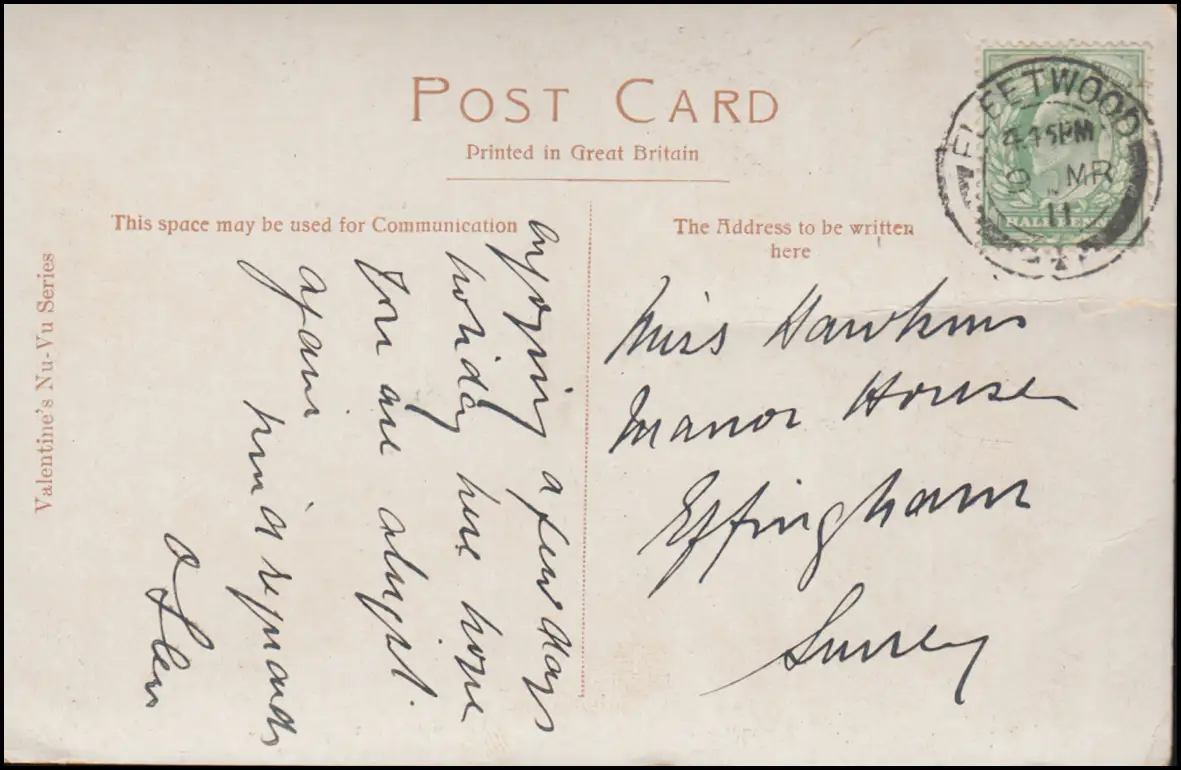 POST CARD
Printed in Great Britain
This space may be used for Communication
The Address to be written
here
Valentine's Nu-Vu Series
FLEETWOOD
4.15PM
MR
11
HALFPENNY
Miss Hawkins
Manor House
Effingham
Surrey
enjoying a few days
holiday here hope
you are alright
again
kind regards